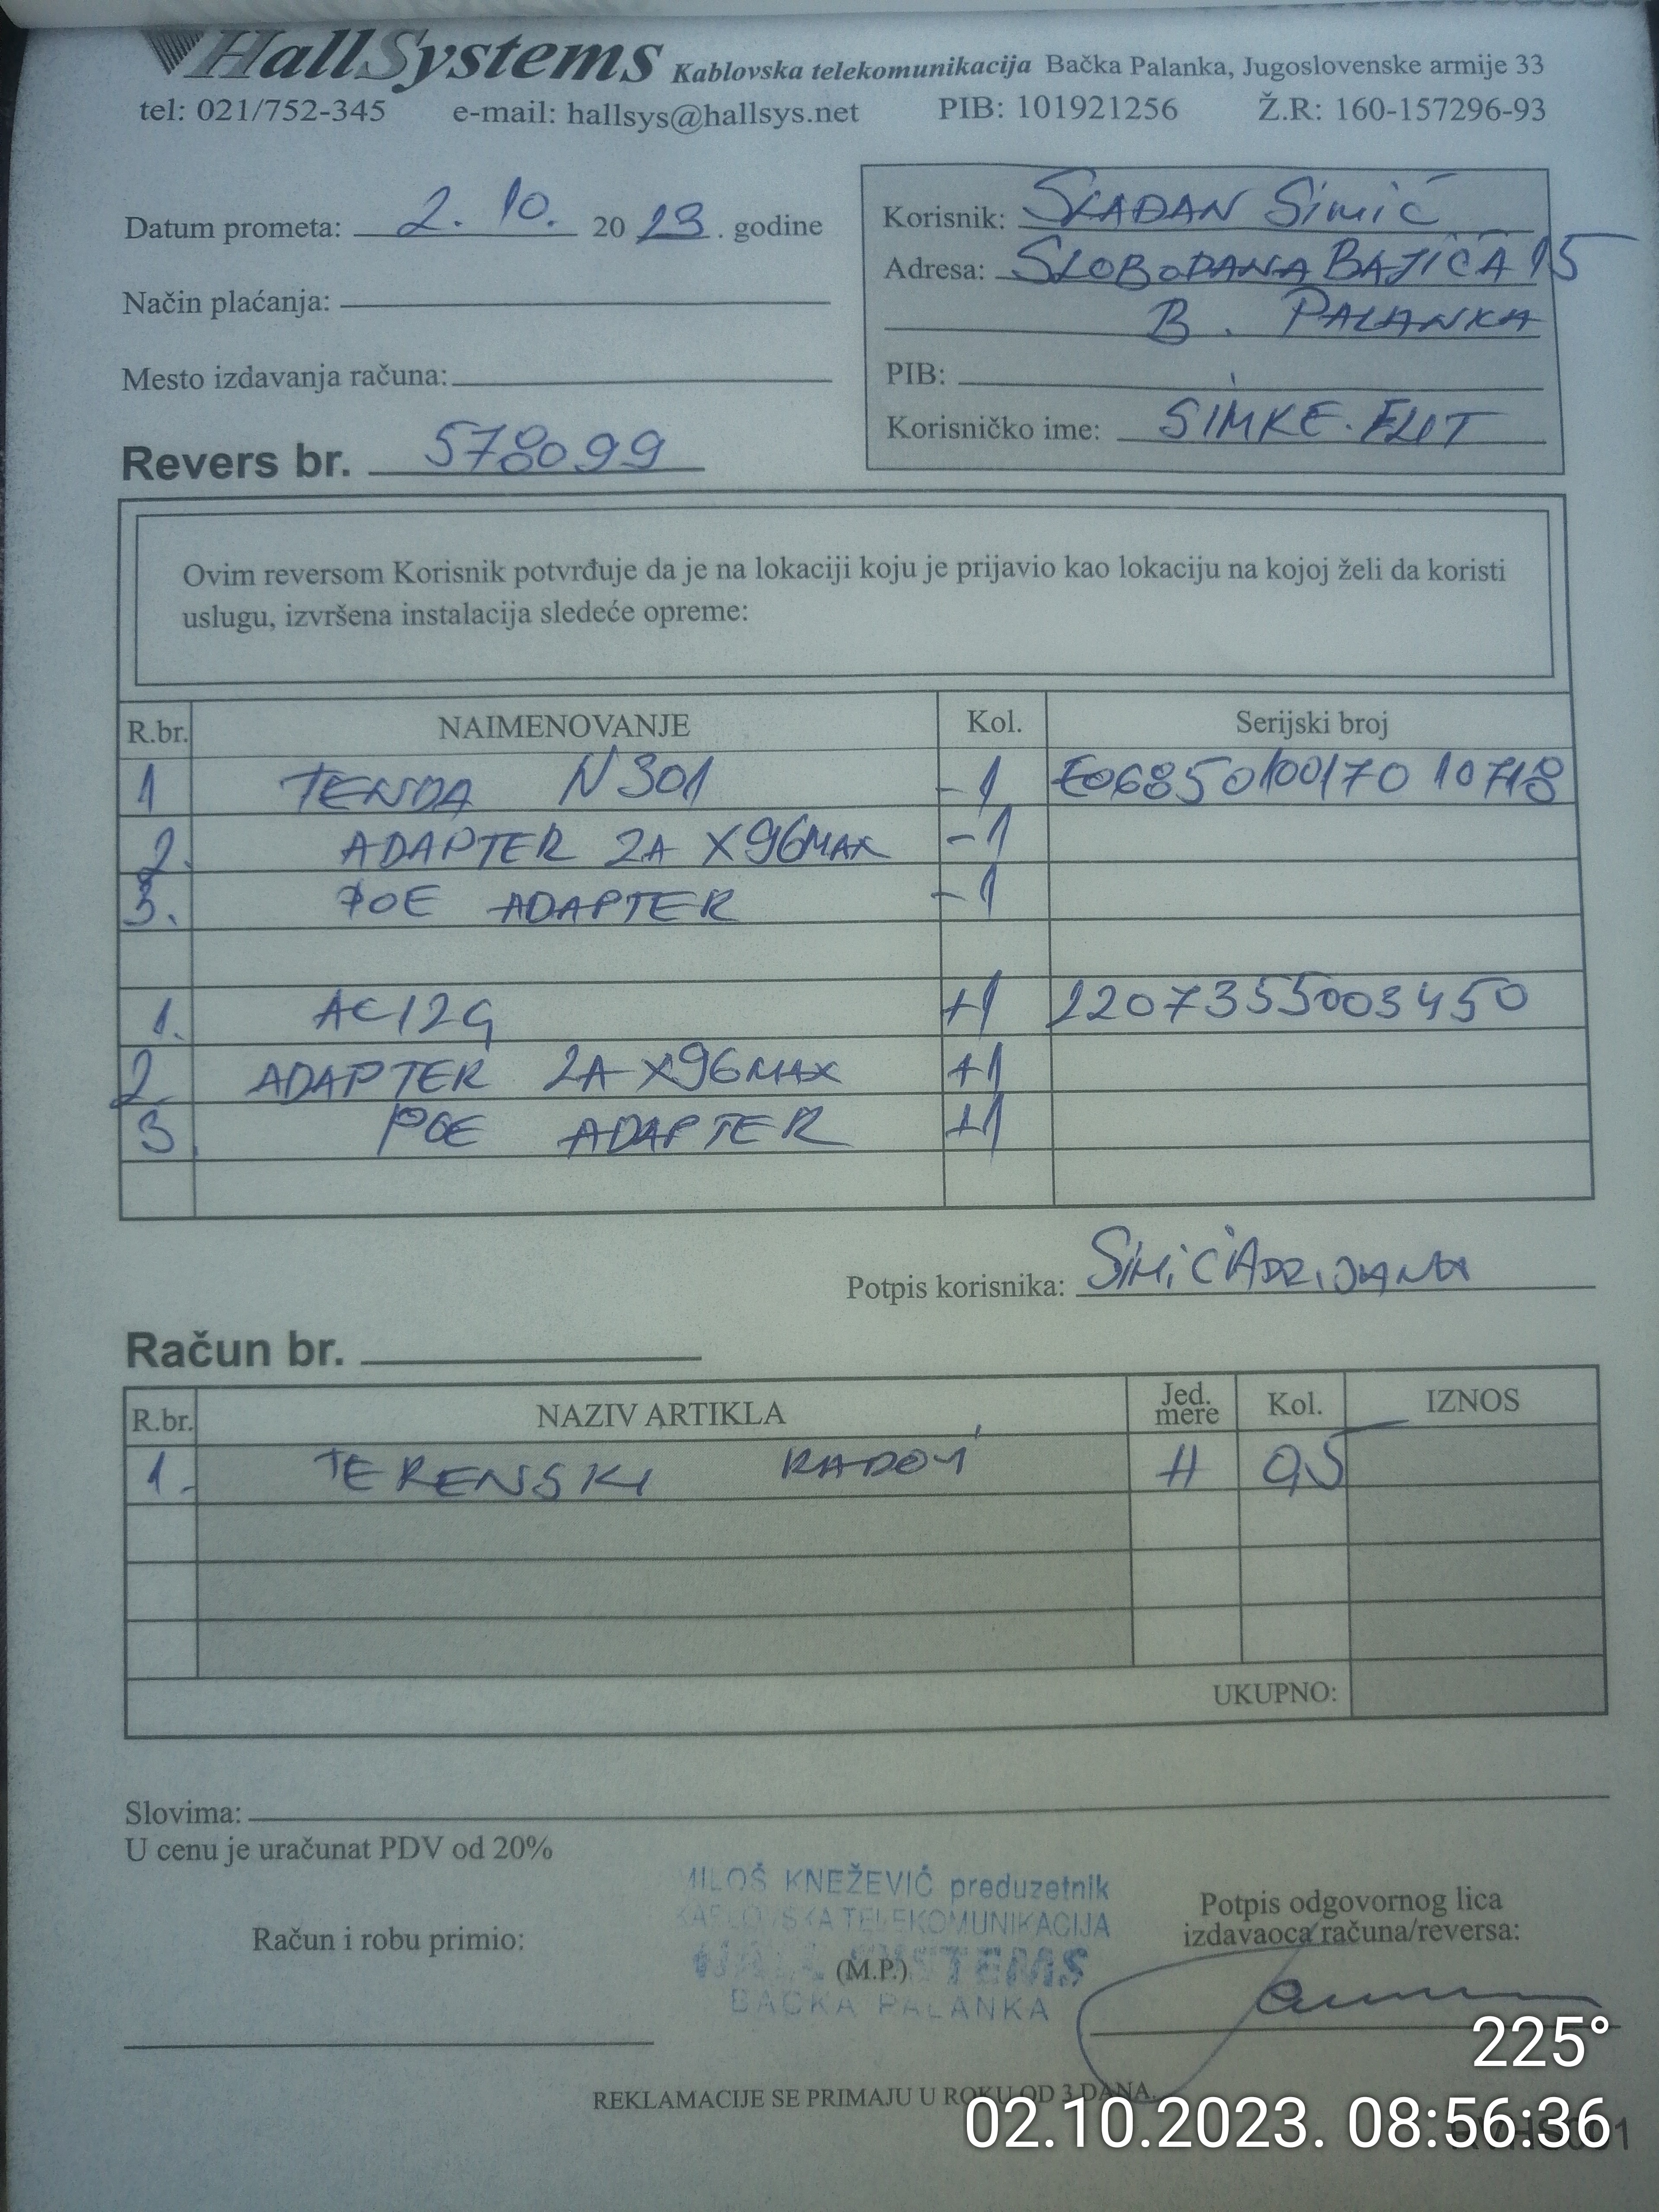 HallSystems Kablovska telekomunikacija Bačka Palanka, Jugoslovenske armije 33
tel: 021/752-345 e-mail: hallsys@hallsys.net PIB: 101921256 Ž.R: 160-157296-93
Datum prometa: 2. 10. 2023. godine
Način plaćanja:
Mesto izdavanja računa:
Revers br. 578099
Korisnik: SLAĐAN SIMIĆ
Adresa: SLOBODANA BAJIĆA 15
B. PALANKA
PIB:
Korisničko ime: SIMKE.ELIT
Ovim reversom Korisnik potvrđuje da je na lokaciji koju je prijavio kao lokaciju na kojoj želi da koristi
uslugu, izvršena instalacija sledeće opreme:
R.br. NAIMENOVANJE Kol. Serijski broj
1 TENDA N301 -1 E0685010017010718
2. ADAPTER 2A X96MAX -1
3. POE ADAPTER -1
1. AC12G +1 2207355003450
2. ADAPTER 2A X96MAX +1
3. POE ADAPTER +1
Potpis korisnika: SIMIĆ ADRIJANA
Račun br.
R.br. NAZIV ARTIKLA Jed. mere Kol. IZNOS
1. TERENSKI RADOVI H 0,5
UKUPNO:
Slovima:
U cenu je uračunat PDV od 20%
MILOŠ KNEŽEVIĆ preduzetnik
KABLOVSKA TELEKOMUNIKACIJA
HALL SYSTEMS
BAČKA PALANKA
(M.P.)
Račun i robu primio:
Potpis odgovornog lica
izdavaoca računa/reversa:
REKLAMACIJE SE PRIMAJU U ROKU OD 3 DANA.
225°
02.10.2023. 08:56:36